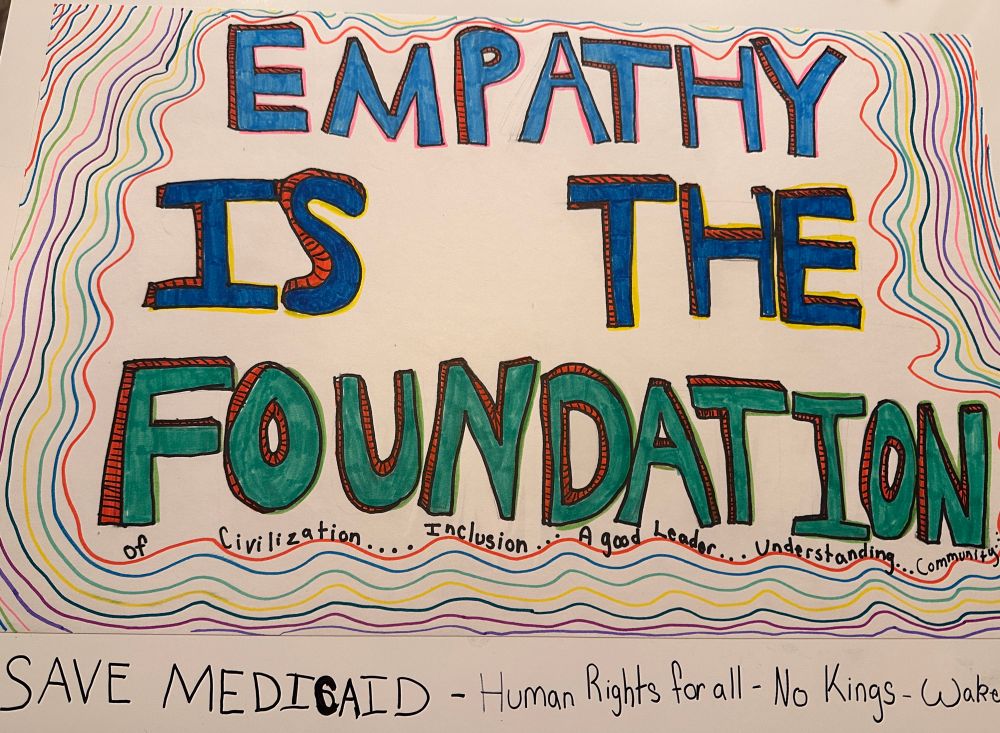 EMPATHY
IS THE
FOUNDATION
of Civilization.... Inclusion... A good Leader... Understanding... Community
SAVE MEDICAID - Human Rights for all - No Kings - Wake